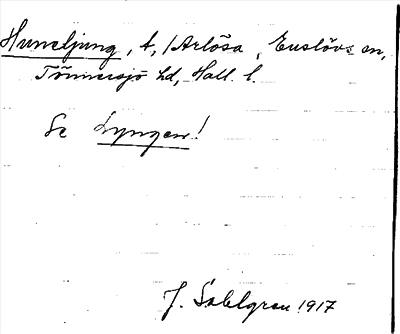 Huneljung, t, / Arlösa, Enslövs sn,
Tönnersjö hd, Hall. l.
Se Lyngen!
J. Sahlgren 1917